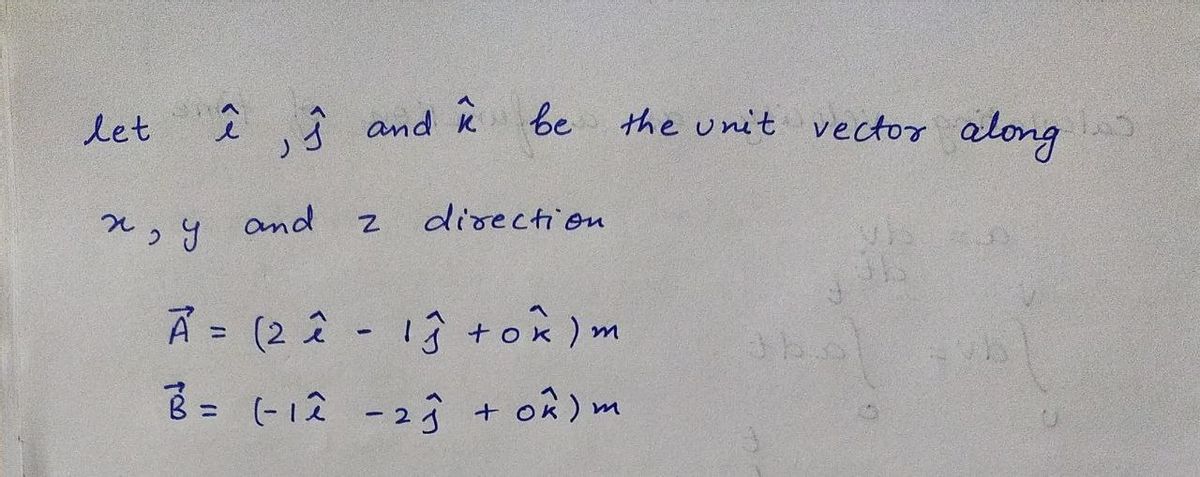 let î , ĵ and k̂ be the unit vector along
x, y and z direction
A⃗ = (2 î - 1ĵ + 0k̂ ) m
B⃗ = (-1î - 2ĵ + 0k̂) m